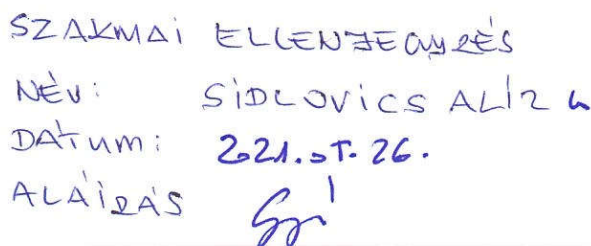 SZAKMAI ELLENJEGYZÉS
NÉV: SIDLOVICS ALÍZ
DÁTUM: 2021.07.26.
ALÁÍRÁS